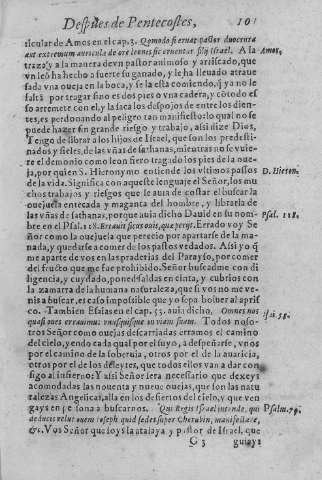 Despues de Pentecostes, 101
ticular de Amos en el cap. 3. Quomodo si eruat pastor duo crura
aut extremum auricula de ore leonis sic eruentur filij Israel. A la
Amos,
traza y a la manera de vn pastor animoso y arriscado, que
vn leõ ha hecho a suerte su ganado, y le ha lleuado atraue
sada vna oueja en la boca, y se la esta comiendo, q̃ ya no le
falta por tragar sino es dos pies o vna cadera, y cõ todo es
so arremete con el, y la saca los despojos de entre los dien-
tes, no perdonando al peligro tan manifiesto: lo qual no se
puede hazer sin grande riesgo y trabajo, assi dize Dios,
Tengo de librar a los hijos de Israel, que son los predesti-
nados y fieles, de las vñas de sathanas, mientras no se vuie-
re el demonio como leon fiero tragado los pies de la oue-
ja, por quien S. Hieronymo entiende los vltimos passos
D. Hieron.
de la vida. Significa con aqueste lenguaje el Señor, los mu
chos trabajos y riesgos que le auia de costar el buscar la
ouejuela enteca y maganta del hombre, y librarla de
las vñas de sathanas, porque auia dicho Dauid en su nom-
bre en el Psal. 118. Erraui sicut ouis, quæ perijt. Errado voy Se
Psal. 118.
ñor como la ouejuela que perecio por apartarse de la ma-
nada, y quedarse a comer de los pastos vedados. Assi yo q̃
me aparte de vos en las praderias del Parayso, por comer
del fructo que me fue prohibido. Señor buscadme con di
ligencia, y cuydado, poned faldas en cinta, y cubrios con
la zamarra de la humana naturaleza, que si vos no me ve-
nis a buscar, es caso impossible que yo sepa boluer al apris
co. Tambien Esaias en el cap. 53. auia dicho. Omnes nos
quasi oues errauimus vnusquisque in viam suam. Todos noso-
Isai. 53.
tros Señor como ouejas descarriadas erramos el camino
del cielo, yendo cada qual por el suyo, a despeñarse, vnos
por el camino de la soberuia, otros por el de la auaricia,
otros por el de los deleytes, que todos ellos van a dar con
sigo al infierno: Y assi Señor sera necessario que dexeys
acomodadas las nouenta y nueue ouejas, que son las natu
ralezas Angelicas, alla en los desiertos del cielo, y que ven
gays en persona a buscarnos. Qui Regis Israel intende, qui
Psalm. 79.
deducis velut ouem Ioseph qui sedes super Cherubin, manifestare,
&c. Vos Señor que soys la atalaya y pastor de Israel, que
G 3 guiays